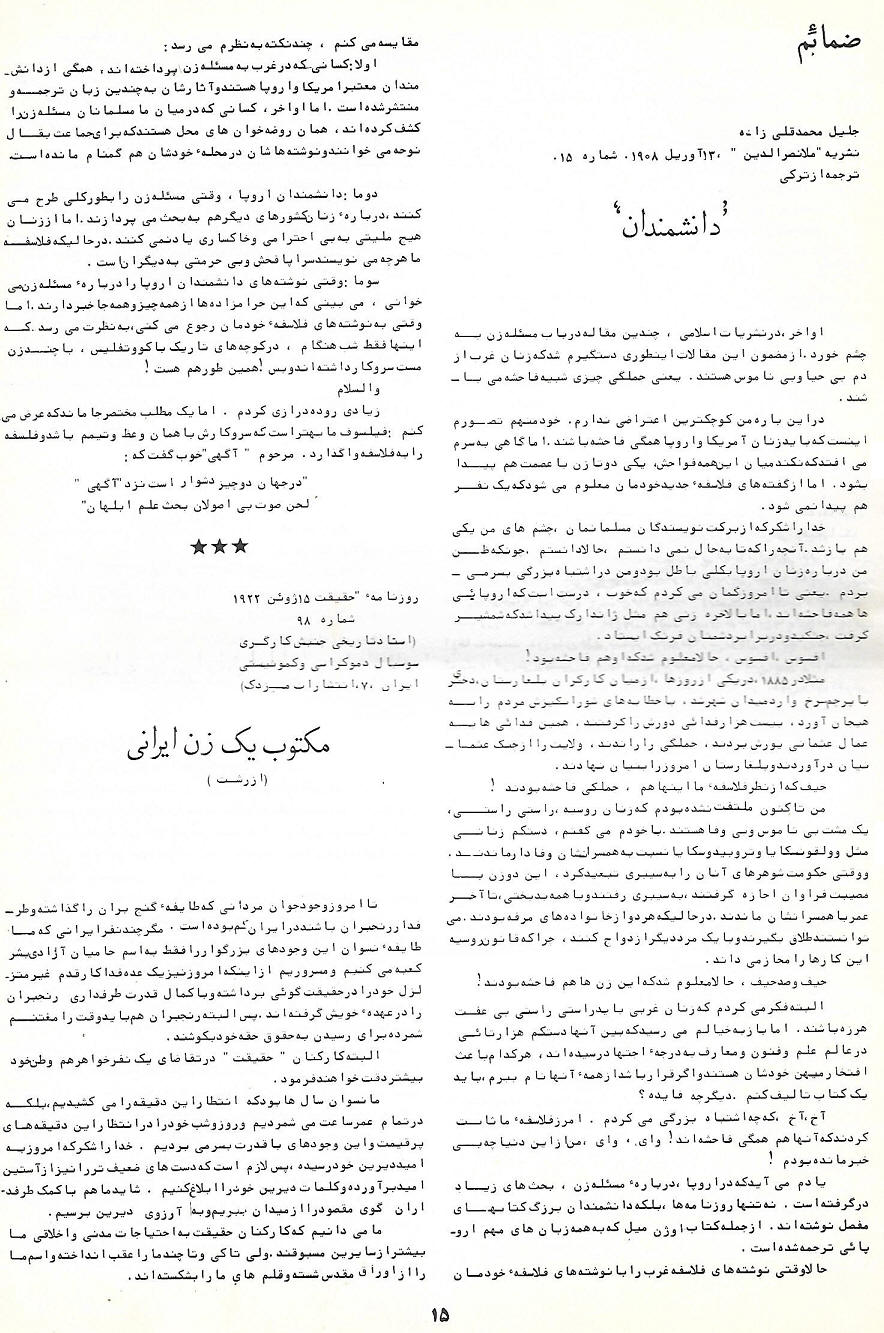 ضمائم
جلیل محمدقلی زاده
نشریه "ملانصرالدین" ،۱۳آوریل ۱۹۰۸، شماره ۱۵.
ترجمه از ترکی
"دانشمندان"
اواخر ،درنشریات اسلامی ، چندین مقاله درباب مسئله زن به
چشم خورد .از مضمون این مقالات اینطوری دستگیرم شدکه زنان غرب از
دم بی حیا وبی ناموس هستند . یعنی جملگی چیزی شبیه فاحشه می با ـ
شند .
در این باره من کوچکترین اعتراضی ندارم . خودمنهم تصورم
اینست که باید زنان آمریکا و اروپا همگی فاحشه باشند .اما گاهی به سرم
می افتد که نکند میان این همه فواحش، یکی دوتا زن با عصمت هم پیدا
بشود . اما از گفته های فلاسفهٔ جدید خودمان معلوم می شود که یک نفر
هم پیدا نمی شود .
خدا را شکر که از برکت نویسندگان مسلمانمان ،چشم های من یکی
هم باز شد .آنچه را که تا به حال نمی دانستم ،حالا دانستم .چونکه ظن
من درباره زنان اروپا بکلی باطل بود و من در اشتباه بزرگی بسر می ـ
بردم .یعنی تا امروز گمان می کردم که خوب ، درست است که اروپائی
ها همه فاحشه اند .اما بالاخره زنی هم مثل ژاندارک پیدا شد که شمشیر
گرفت ،جنگید و در برابر دشمنان فرنگ ایستاد .
افسوس ،افسوس ، حالا معلوم شد که او هم فاحشه بود !
مثلا در ۱۸۸۵، در یکی از روزها ،از میان کارگران بلغارستان ،دختری
با پرچم سرخ وارد میدان شهر شد ، با خطابه های شورانگیزش مردم را به
هیجان آورد ، بیست هزار فدائی دورش را گرفتند ، همین فدائی ها به
عمال عثمانی یورش بردند ، جملگی را راندند ، ولایت را از چنگ عثما ـ
نیان درآوردند و بلغارستان امروز را بنیان نهادند .
حیف که از نظر فلاسفهٔ ما اینها هم ، جملگی فاحشه بودند !
من تا کنون ملتفت نشده بودم که زنان روسیه ،راستی راستی ،
یک مشت بی ناموس و بی وفا هستند .با خودم می گفتم ، دستکم زنانی
مثل وولقونسکایا و تروبیدوسکایا نسبت به همسرانشان وفادار ماندند .
و وقتی حکومت شوهرهای آنان را به سیبری تبعید کرد ، این دو زن با
مصیبت فراوان اجازه گرفتند ،به سیبری رفتند و با همه بدبختی ،تا آخر
عمر با همسرانشان ماندند .در حالیکه هر دو از خانواده های مرفه بودند .می
توانستند طلاق بگیرند و با یک مرد دیگر ازدواج کنند ، چرا که قانون روسیه
این کارها را مجاز می داند .
حیف و صد حیف ، حالا معلوم شد که این زن ها هم فاحشه بودند !
البته فکر می کردم که زنان غربی باید راستی راستی بی عفت
هرزه باشند . اما باز به خیالم می رسید که بین آنها دستکم هزارتائی
در عالم علم و فنون و معارف به درجهٔ اجتهاد رسیده اند ، هر کدام باعث
افتخار میهن خودشان هستند و اگر قرار باشد از همهٔ آنها نام ببرم ،باید
یک کتاب تالیف کنم . دیگر چه فایده ؟
آخ ،آخ ،که چه اشتباه بزرگی می کردم . امروز فلاسفهٔ ما ثابت
کردند که آنها هم همگی فاحشه اند ! وای ، وای ،من از این دنیا چه بی
خبر مانده بودم !
یادم می آید که در اروپا ، دربارهٔ مسئله زن ، بحث های زیاد
در گرفته است . نه تنها روزنامه ها ،بلکه دانشمندان بزرگ کتابهای
مفصل نوشته اند . از جمله کتاب اوژن میل که به همه زبان های مهم ارو ـ
پائی ترجمه شده است .
حالا وقتی نوشته های فلاسفه غرب را با نوشته های فلاسفهٔ خودمان
مقایسه می کنم ، چند نکته به نظرم می رسد :
اولا :کسانی که در غرب به مسئله زن پرداخته اند ، همگی از دانش ـ
مندان معتبر امریکا و اروپا هستند و آثارشان به چندین زبان ترجمه و
منتشر شده است .اما اواخر ، کسانی که در میان ما مسلمانان مسئله زن را
کشف کرده اند ، همان روضه خوان های محل هستند که برای جماعت بقال
نوحه می خوانند و نوشته هاشان در محلهٔ خودشان هم گمنام مانده است .
دوما :دانشمندان اروپا ، وقتی مسئله زن را بطور کلی طرح می
کنند ،دربارهٔ زنان کشورهای دیگر هم به بحث می پردازند .اما از زنان
هیچ ملیتی به بی احترامی و خاکساری یاد نمی کنند .در حالیکه فلاسفه
ما هر چه می نویسند سراپا فحش و بی حرمتی به دیگران است .
سوما :وقتی نوشته های دانشمندان اروپا را دربارهٔ مسئله زن می
خوانی ، می بینی که این حرامزاده ها از همه چیز و همه جا خبر دارند .اما
وقتی به نوشته های فلاسفهٔ خودمان رجوع می کنی ،به نظرت می رسد .که
اینها فقط شب هنگام ، در کوچه های تاریک باکو و تفلیس ، با چند زن
مست سروکار داشته اند و بس !همین طور هم هست !
والسلام
زیادی روده درازی کردم . اما یک مطلب مختصر جا ماند که عرض می
کنم :فیلسوف ما بهتر است که سروکارش با همان وعظ و یتیم باشد و فلسفه
را به فلاسفه واگذارد . مرحوم "آگهی" خوب گفت که :
"در جهان دو چیز دشوار است نزد "آگهی"
لحن صوت بی اصولان بحث علم ابلهان"
★★★
روزنامهٔ "حقیقت ۱۵ژوئن ۱۹۲۲
شماره ۹۸
(اسناد تاریخی جنبش کارگری
سوسیال دموکراسی و کمونیستی
ایران ،۷،انتشارات مزدک)
مکتوب یک زن ایرانی
(از رشت)
تا امروز وجود جوان مردانی که طایفهٔ گنج بران را گذاشته و طر ـ
فدار رنجبران باشند در ایران کم بوده است . مگر چند نفر ایرانی که ما
طایفهٔ نسوان این وجودهای بزرگوار را فقط به اسم حامیان آزادی بشر
کعبه می کنیم و مسروریم از اینکه امروز نیز یک عده فداکار قدم غیر متز ـ
لزل خود را در حقیقت گوئی برداشته و با کمال قدرت طرفداری رنجبران
را در عهدهٔ خویش گرفته اند .پس البته رنجبران هم باید وقت را مغتنم
شمرده برای رسیدن به حقوق حقه خود بکوشند .
البته کارکنان "حقیقت" در تقاضای یک نفر خواهر هم وطن خود
بیشتر دقت خواهند فرمود .
ما نسوان سال ها بود که انتظار این دقیقه را می کشیدیم ،بلکه
در تمام عمر ساعت می شمردیم و روز و شب خود را در انتظار این دقیقه های
پر قیمت و این وجودهای با قدرت بسر می بردیم . خدا را شکر که امروز به
امید دیرین خود رسیده ،پس لازم است که دست های ضعیف تر را نیز از آستین
امید برآورده و کلمات دیرین خود را ابلاغ کنیم . شاید ما هم با کمک طرفد ـ
اران گوی مقصود را از میدان ببریم و به آرزوی دیرین برسیم .
ما می دانیم که کارکنان حقیقت به احتیاجات مدنی و اخلاقی ما
بیشتر از سایرین مسبوقند .ولی تا کی و تا چند ما را عقب انداخته و اسم ما
را از اوراق مقدس شسته و قلم های ما را بشکسته اند .
۱۵